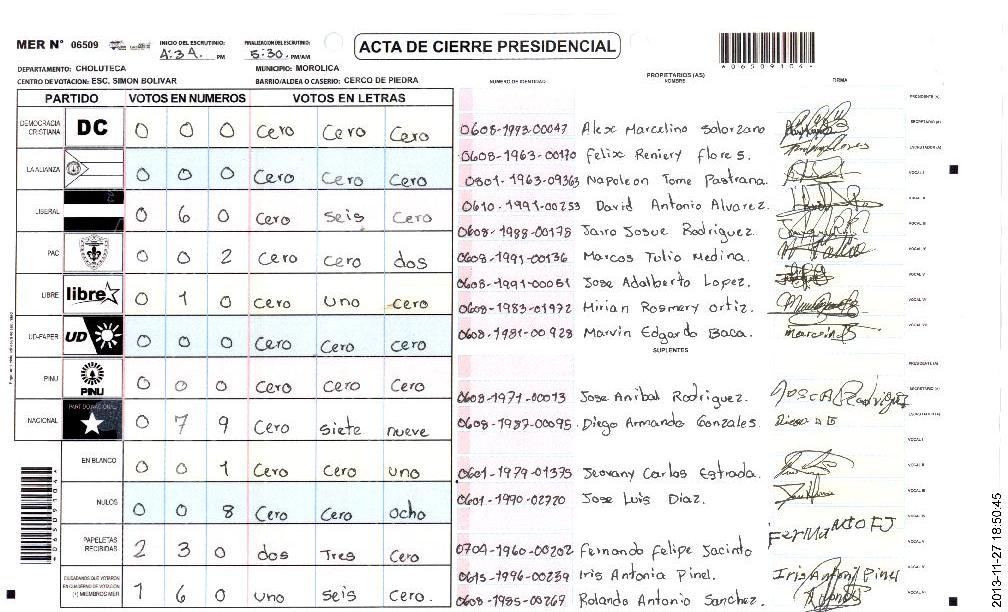 MER N° 06509
INICIO DEL ESCRUTINIO: 4:34 PM
FINALIZACION DEL ESCRUTINIO: 5:30 PM/AM
ACTA DE CIERRE PRESIDENCIAL
*06509104*
DEPARTAMENTO: CHOLUTECA MUNICIPIO: MOROLICA
CENTRO DE VOTACION: ESC. SIMON BOLIVAR BARRIO/ALDEA O CASERIO: CERCO DE PIEDRA
PARTIDO VOTOS EN NUMEROS VOTOS EN LETRAS
DEMOCRACIA CRISTIANA DC 0 0 0 Cero Cero Cero
LA ALIANZA 0 0 0 Cero Cero Cero
LIBERAL 0 6 0 Cero seis Cero
PAC 0 0 2 Cero Cero dos
LIBRE libre 0 1 0 Cero uno Cero
UD-FAPER UD 0 0 0 Cero Cero Cero
PINU PINU 0 0 0 Cero Cero Cero
NACIONAL PARTIDO NACIONAL 0 7 9 Cero siete nueve
EN BLANCO 0 0 1 Cero Cero uno
NULOS 0 0 8 Cero Cero Ocho
PAPELETAS RECIBIDAS 2 3 0 dos Tres Cero
CIUDADANOS QUE VOTARON EN CUADERNO DE VOTACION (+) MIEMBROS MER 1 6 0 uno seis Cero.
NUMERO DE IDENTIDAD PROPIETARIOS (AS) NOMBRE FIRMA
PRESIDENTE (A)
0608-1973-00047 Alex Marcelino Solorzano SECRETARIO (A)
0608-1963-00170 Felix Reniery Flores. ESCRUTADOR (A)
0801-1963-09363 Napoleon Tome Pastrana. VOCAL I
0610-1991-00253 David Antonio Alvarez. VOCAL II
0608-1988-00178 Jairo Josue Rodriguez. VOCAL III
0608-1991-00136 Marcos Tulio Medina. VOCAL IV
0608-1991-00051 Jose Adalberto Lopez. VOCAL V
0608-1983-01972 Mirian Rosmery Ortiz. VOCAL VI
0608-1981-00928 Marvin Edgardo Baca. VOCAL VII
SUPLENTES
PRESIDENTE (A)
0608-1971-00013 Jose Anibal Rodriguez. SECRETARIO (A)
0608-1987-00095 Diego Armando Gonzales. ESCRUTADOR (A)
VOCAL I
0601-1979-01375 Jeovany Carlos Estrada. VOCAL II
0601-1990-02720 Jose Luis Diaz. VOCAL III
VOCAL IV
0704-1960-00202 Fernando Felipe Jacinto VOCAL V
0615-1996-00239 Iris Antonia Pinel. Iris Antoni Pinel
0608-1985-00269 Rolando Antonio Sanchez.
2013-11-27 18:50:45